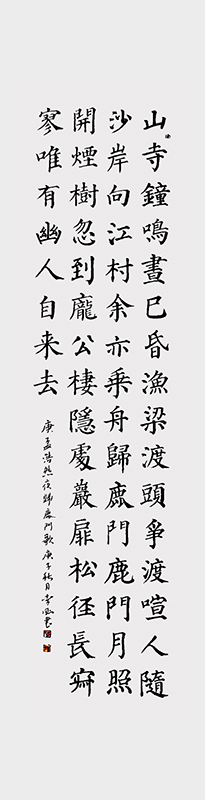 山寺鐘鳴晝已昏漁梁渡頭爭渡喧人隨
沙岸向江村余亦乘舟歸鹿門鹿門月照
開煙樹忽到龐公棲隱處巖扉松徑長寂
寥唯有幽人自来去
唐孟浩然夜歸鹿门歌庚子秋月李